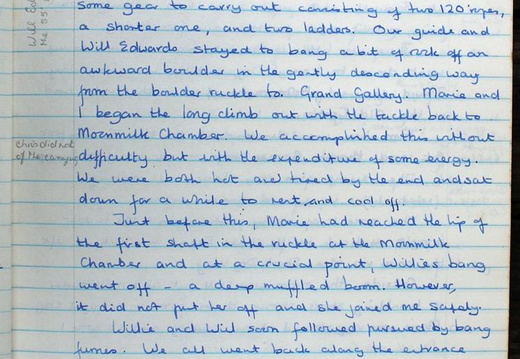 some gear to carry out consisting of two 120' ropes,
a shorter one, and two ladders. Our guide and
Will Edwards stayed to bang a bit of rock off an
awkward boulder in the gently descending way
from the boulder ruckle to Grand Gallery. Marie and
I began the long climb out with the tackle back to
Moonmilk Chamber. We accomplished this without
difficulty, but with the expenditure of some energy.
We were both hot and tired by the end and sat
down for a while to rest and cool off.
Just before this, Marie had reached the lip of
the first shaft in the ruckle at the Moonmilk
Chamber and at a crucial point, Willie's bang
went off - a deep muffled boom. However,
it did not put her off and she joined me safely.
Willie and Will soon followed pursued by bang
fumes. We all went back along the entrance
Chris did not
of the carrying
Will